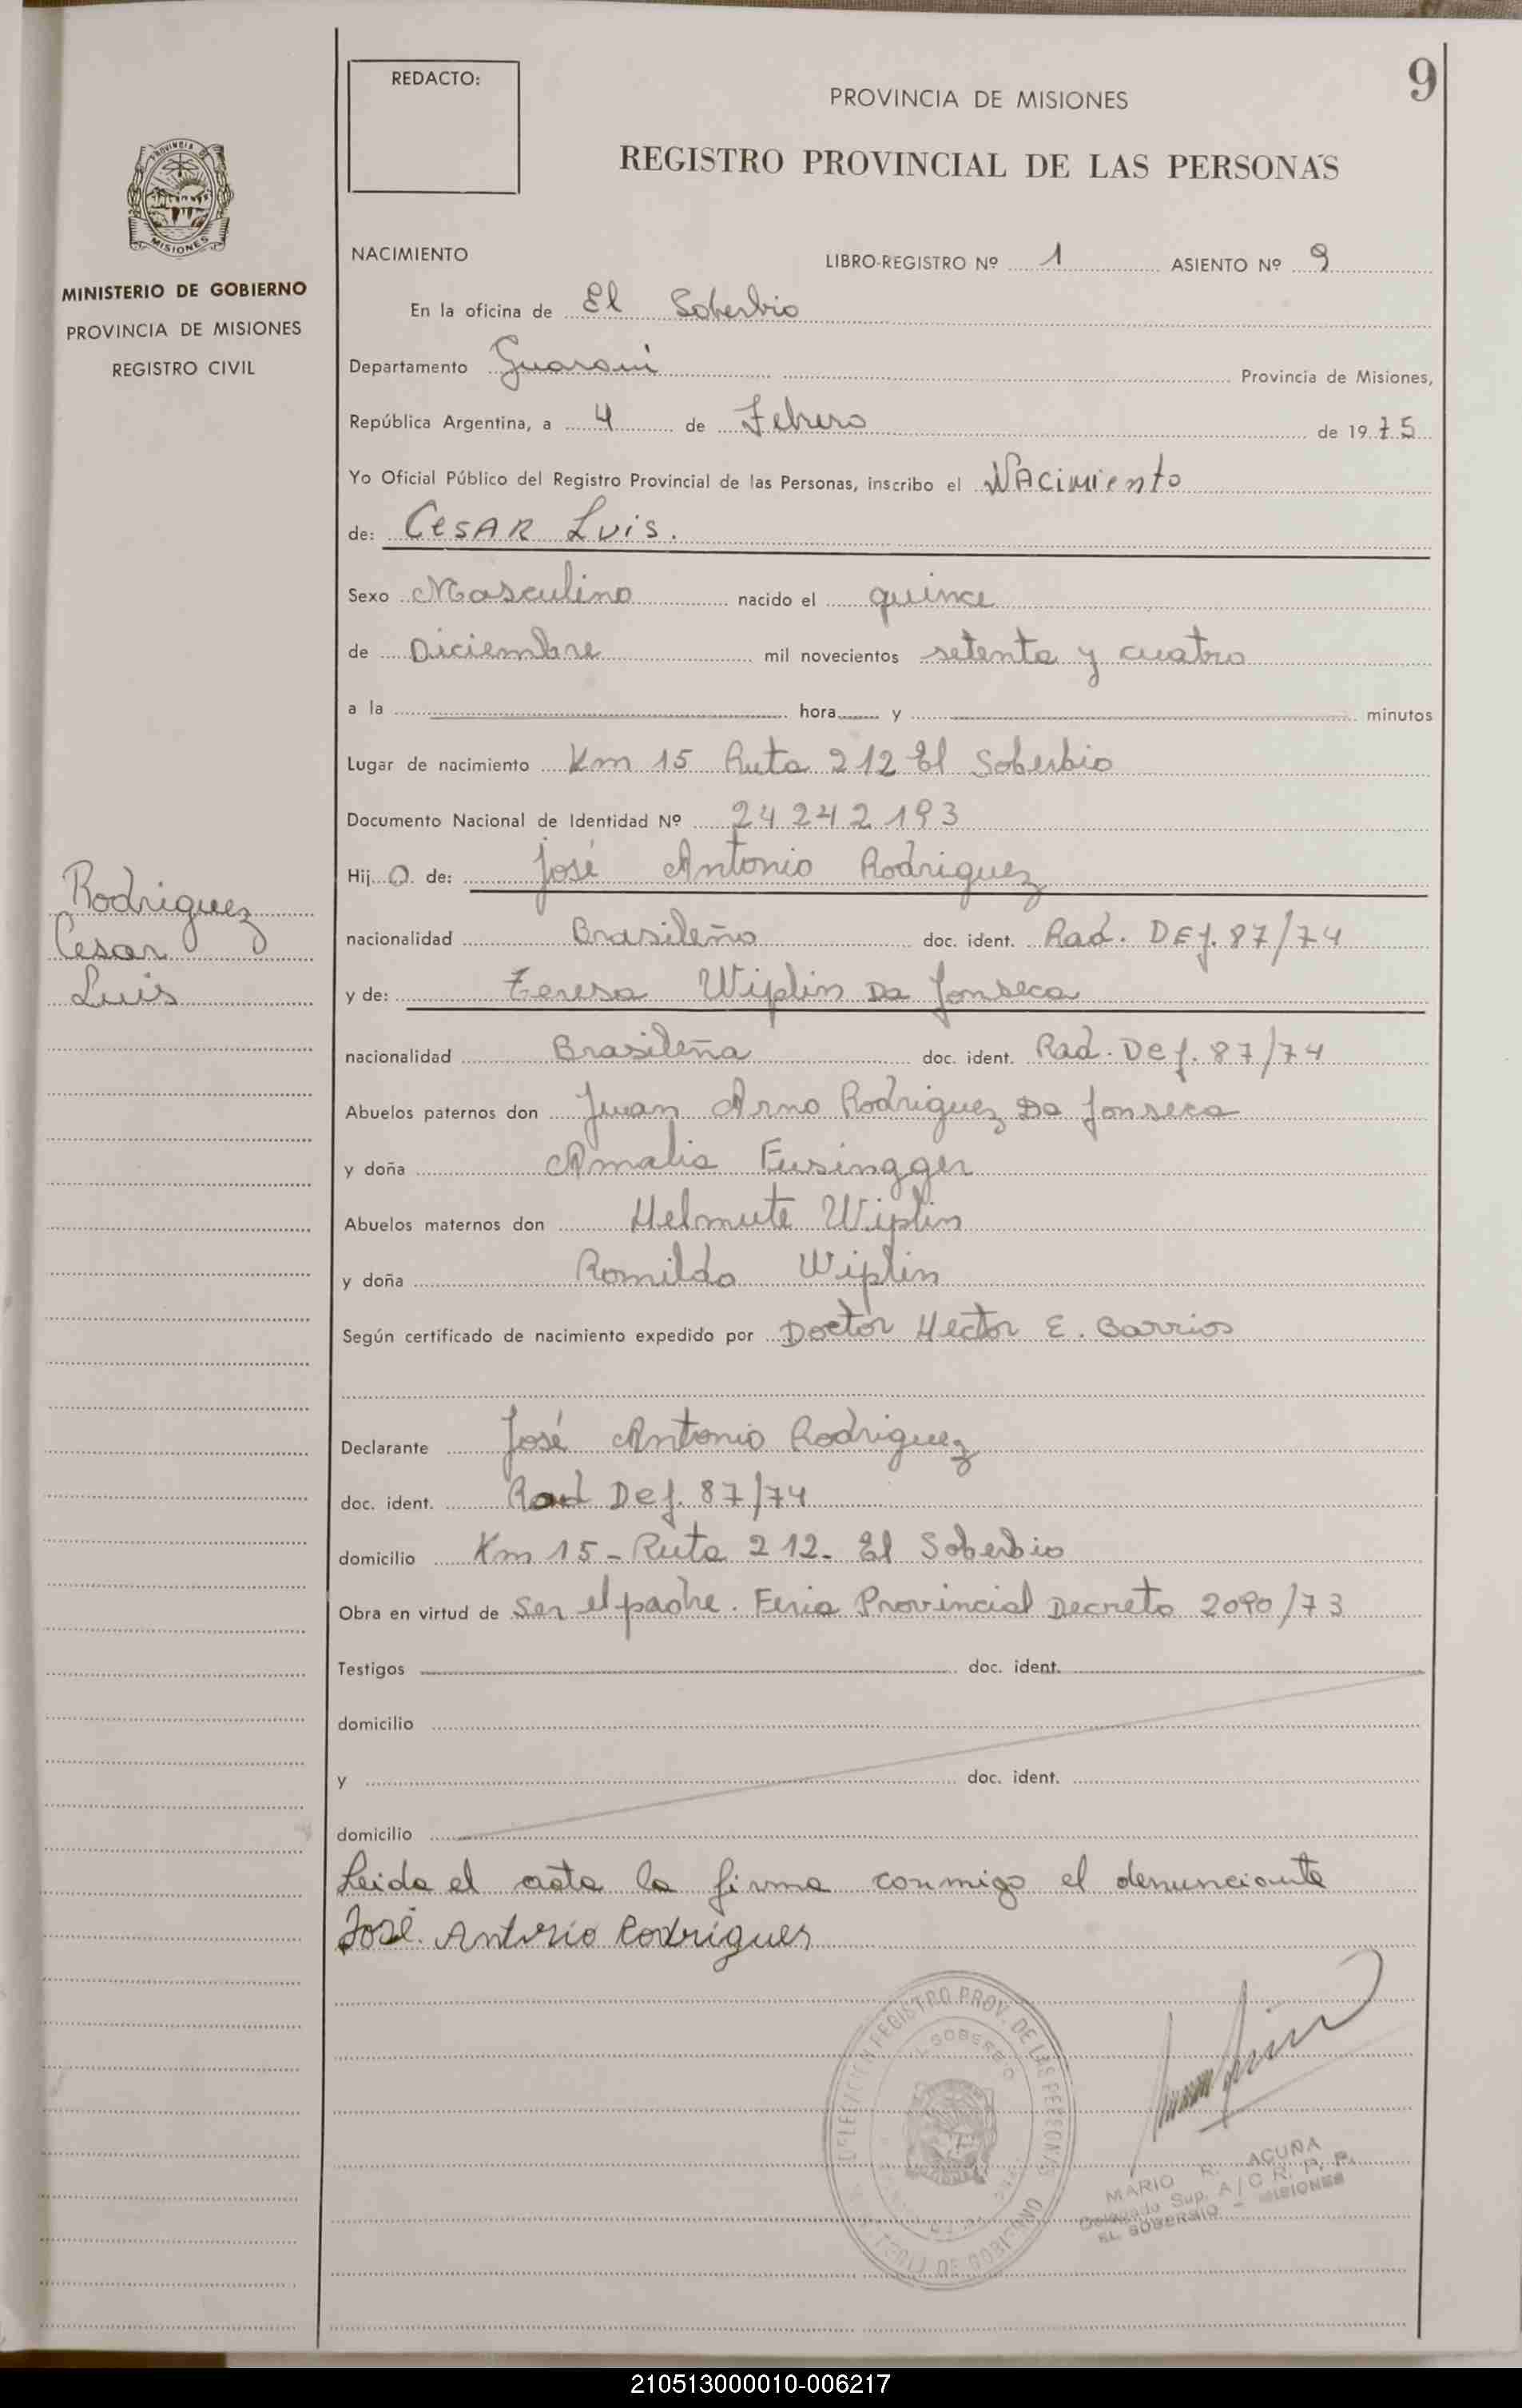 9
REDACTO:
PROVINCIA DE MISIONES
REGISTRO PROVINCIAL DE LAS PERSONAS
PROVINCIA DE
MISIONES
MINISTERIO DE GOBIERNO
PROVINCIA DE MISIONES
REGISTRO CIVIL
NACIMIENTO LIBRO-REGISTRO Nº 1 ASIENTO Nº 9
En la oficina de El Soberbio
Departamento Guarani Provincia de Misiones,
República Argentina, a 4 de Febrero de 1975
Yo Oficial Público del Registro Provincial de las Personas, inscribo el NAcimiento
de: CesAR Luis.
Sexo Masculino nacido el quince
de Diciembre mil novecientos setenta y cuatro
a la hora y minutos
Lugar de nacimiento Km 15 Ruta 212 El Soberbio
Documento Nacional de Identidad Nº 24 242 193
Hijo de: José Antonio Rodriguez
nacionalidad Brasileño doc. ident. Rad. DEf. 87/74
y de: Teresa Wiplin Da Fonseca
nacionalidad Brasileña doc. ident. Rad. Def. 87/74
Abuelos paternos don Juan Arno Rodriguez Da Fonseca
y doña Amalia Eusingger
Abuelos maternos don Helmute Wiplin
y doña Romilda Wiplin
Según certificado de nacimiento expedido por Doctor Hector E. Barrios
Rodriguez
Cesar
Luis
Declarante José Antonio Rodriguez
doc. ident. Rad Def. 87/74
domicilio Km 15 - Ruta 212. El Soberbio
Obra en virtud de Ser el padre. Feria Provincial Decreto 2090/73
Testigos doc. ident.
domicilio
y doc. ident.
domicilio
Leida el acta la firma conmigo el denunciante
José Antonio Rodrigues
REGISTRO PROV. DE LAS PERSONAS
EL SOBERBIO
DE GOBIERNO
MARIO R. ACUÑA
Delegado Sup. A/C R. P. P.
EL SOBERBIO - MISIONES
210513000010-006217